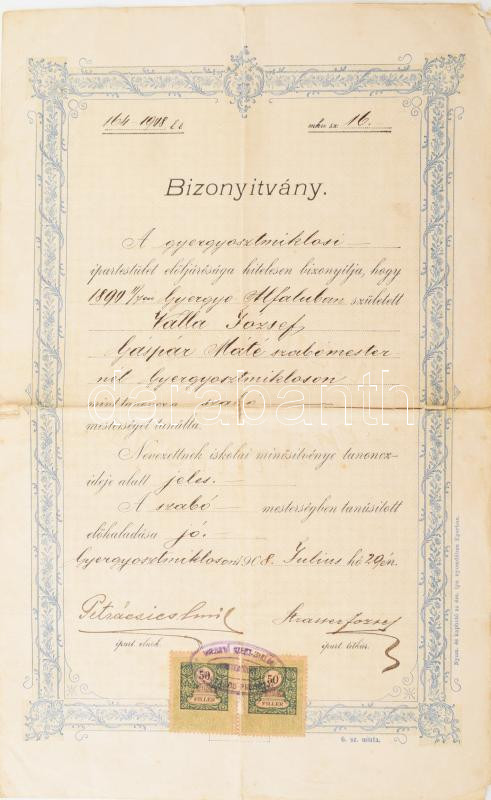 164-1908 Ee
mkv sz 16.
Bizonyitvány.
A gyergyosztmiklosi
ipartestület előljárósága hitelesen bizonyitja, hogy
1890 Gyergyo Alfaluban született
Valla József
Gáspár Máté szabómester-
nél Gyergyosztmikloson
mint tanoncz a szabó
mesterséget tanulta.
Nevezettnek iskolai minősitvénye tanoncz-
ideje alatt jeles.
A szabó mesterségben tanúsitott
előhaladása jó.
Gyergyosztmikloson 1908. Julius hó 29én.
Petrácsics Emil
Strasser József
ipart. elnök.
ipart. titkár.
50
50
FILLÉR
FILLÉR
6. sz. minta.
darabanth